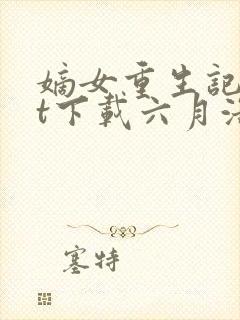 嫡女重生記
t下載六月
塞特